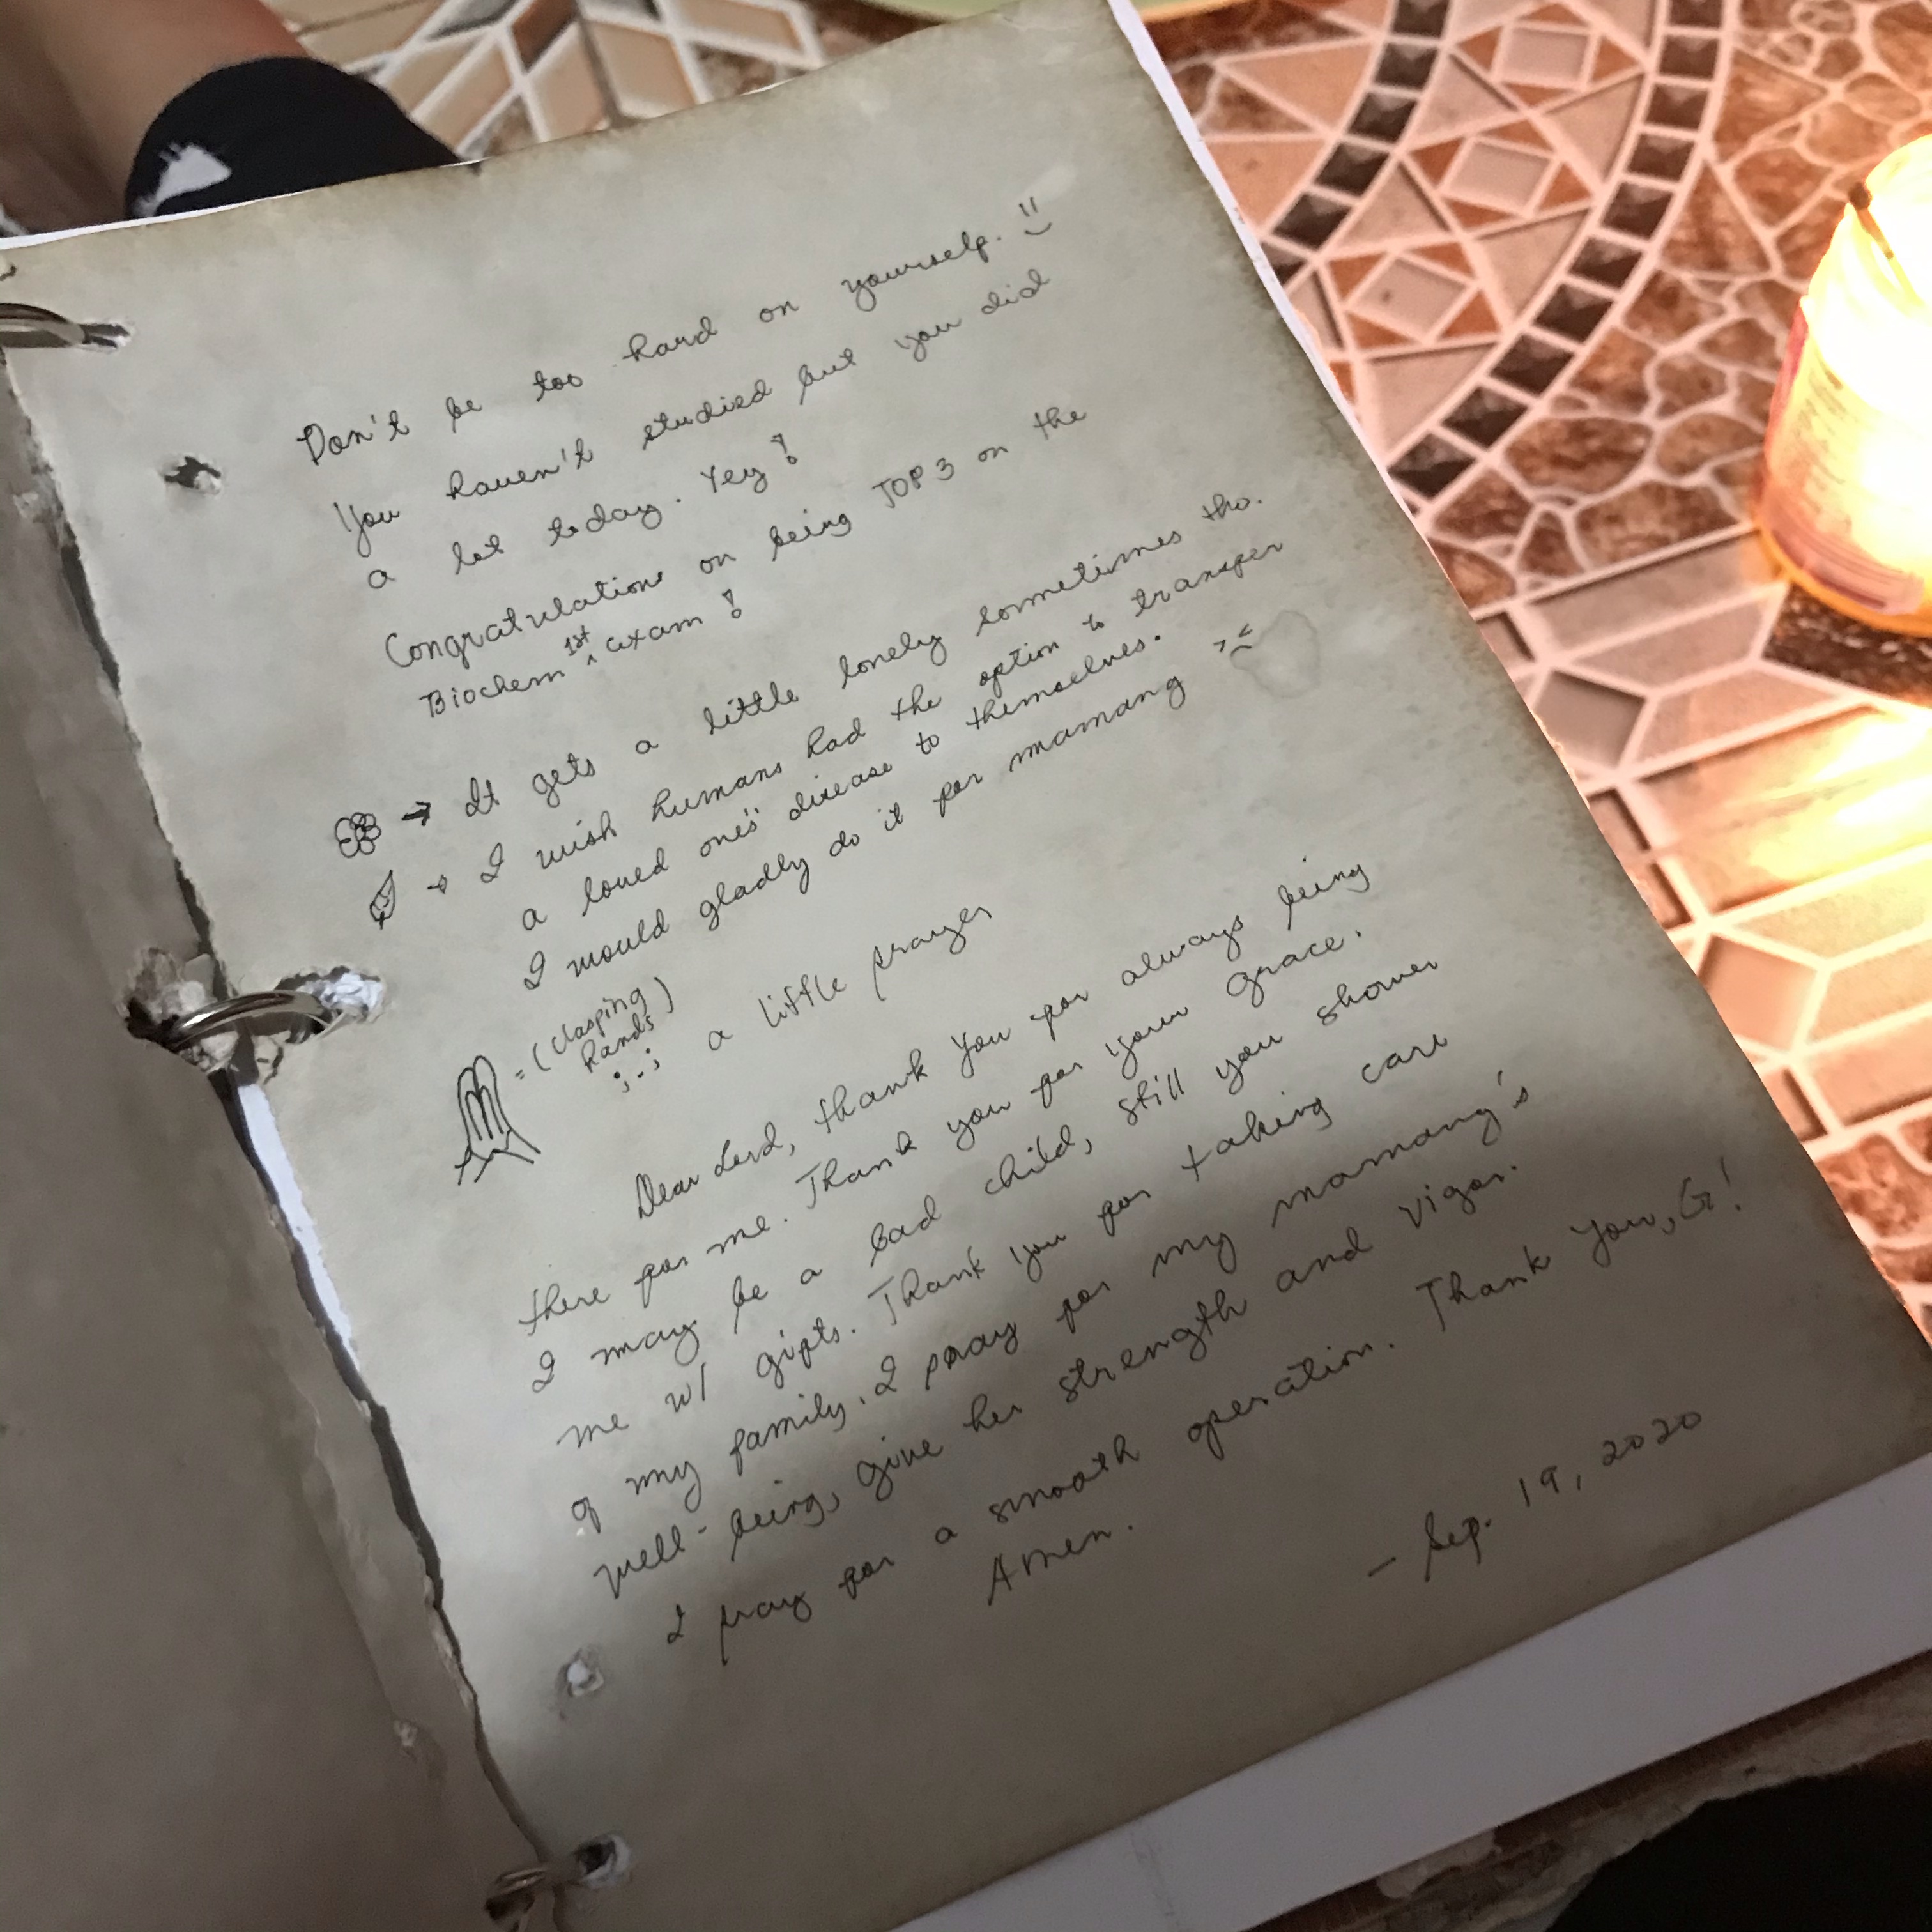 Don't be too hard on yourself.
You haven't studied but you did
a lot today. Yey!
Congratulations on being TOP 3 on the
Biochem 1st exam!
→ It gets a little lonely sometimes tho.
→ I wish humans had the option to transfer
a loved one's' disease to themselves.
I would gladly do it for mamang >~<
= (clasping
hands)
;-; a little prayer
Dear Lord, thank You for always being
there for me. Thank you for your grace.
I may be a bad child, still you shower
me w/ gifts. Thank you for taking care
of my family. I pray for my mamang's
well-being, give her strength and vigor.
I pray for a smooth operation. Thank you, G!
Amen.
- Sep. 19, 2020